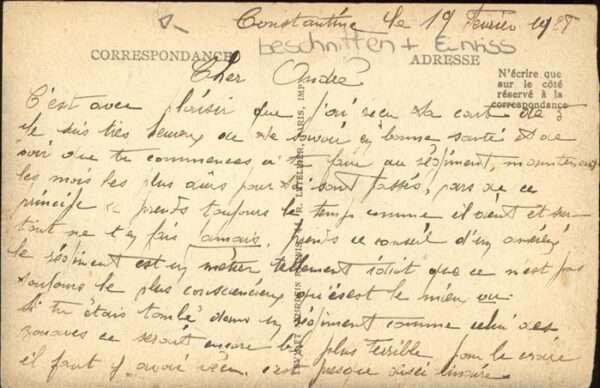 Constantine le 19 février 1928
beschnitten + Einriss
CORRESPONDANCE
ADRESSE
Cher André
N'écrire que
sur le côté
réservé à la
correspondance
C'est avec plaisir que j'ai reçu ta carte
je suis très heureux de te savoir en bonne santé et de
voir que tu commences à te faire au régiment, maintenant
les mois les plus durs pour toi sont passés, pars de ce
principe prends toujours le temps comme il vient et sur
tout ne t'en fais jamais, prends ce conseil d'un ancien
le régiment est un métier tellement idiot que ce n'est pas
toujours le plus consciencieux qui est le mieux vu
si tu étais tombé dans un régiment comme celui des
zouaves ce serait encore plus terrible pour le croire
il faut y avoir vécu c'est presque